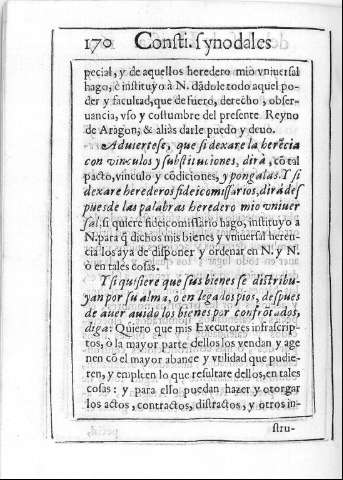 170 Consti. synodales
pecial, y de aquellos heredero mio vniuersal
hago, è instituyo à N. dãdole todo aquel po-
der y facultad, que de fuero, derecho, obser-
uancia, vso y costumbre del presente Reyno
de Aragon, & aliàs darle puedo y deuo.
Aduiertese, que si dexare la herẽcia
con vinculos y substituciones, dirà, cõ tal
pacto, vinculo y cõdiciones, y pongalas. Y si
dexare herederos fideicomissarios, dirá des
pues de las palabras heredero mio vniuer
sal, si quiere fideicomissario hago, instituyo a
N. para q̃ dichos mis bienes y vniuersal heren
cia los aya de disponer y ordenar en N. y N.
ò en tales cosas.
Y si quisiere que sus bienes se distribu-
yan por su alma, ò en legados pios, despues
de auer auido los bienes por confrõtados,
diga: Quiero que mis Executores infrascrip-
tos, ò la mayor parte dellos los vendan y age
nen cõ el mayor abance y vtilidad que pudie-
ren, y empleen lo que resultare dellos, en tales
cosas: y para ello puedan hazer y otorgar
los actos, contractos, distractos, y otros in-
stru-